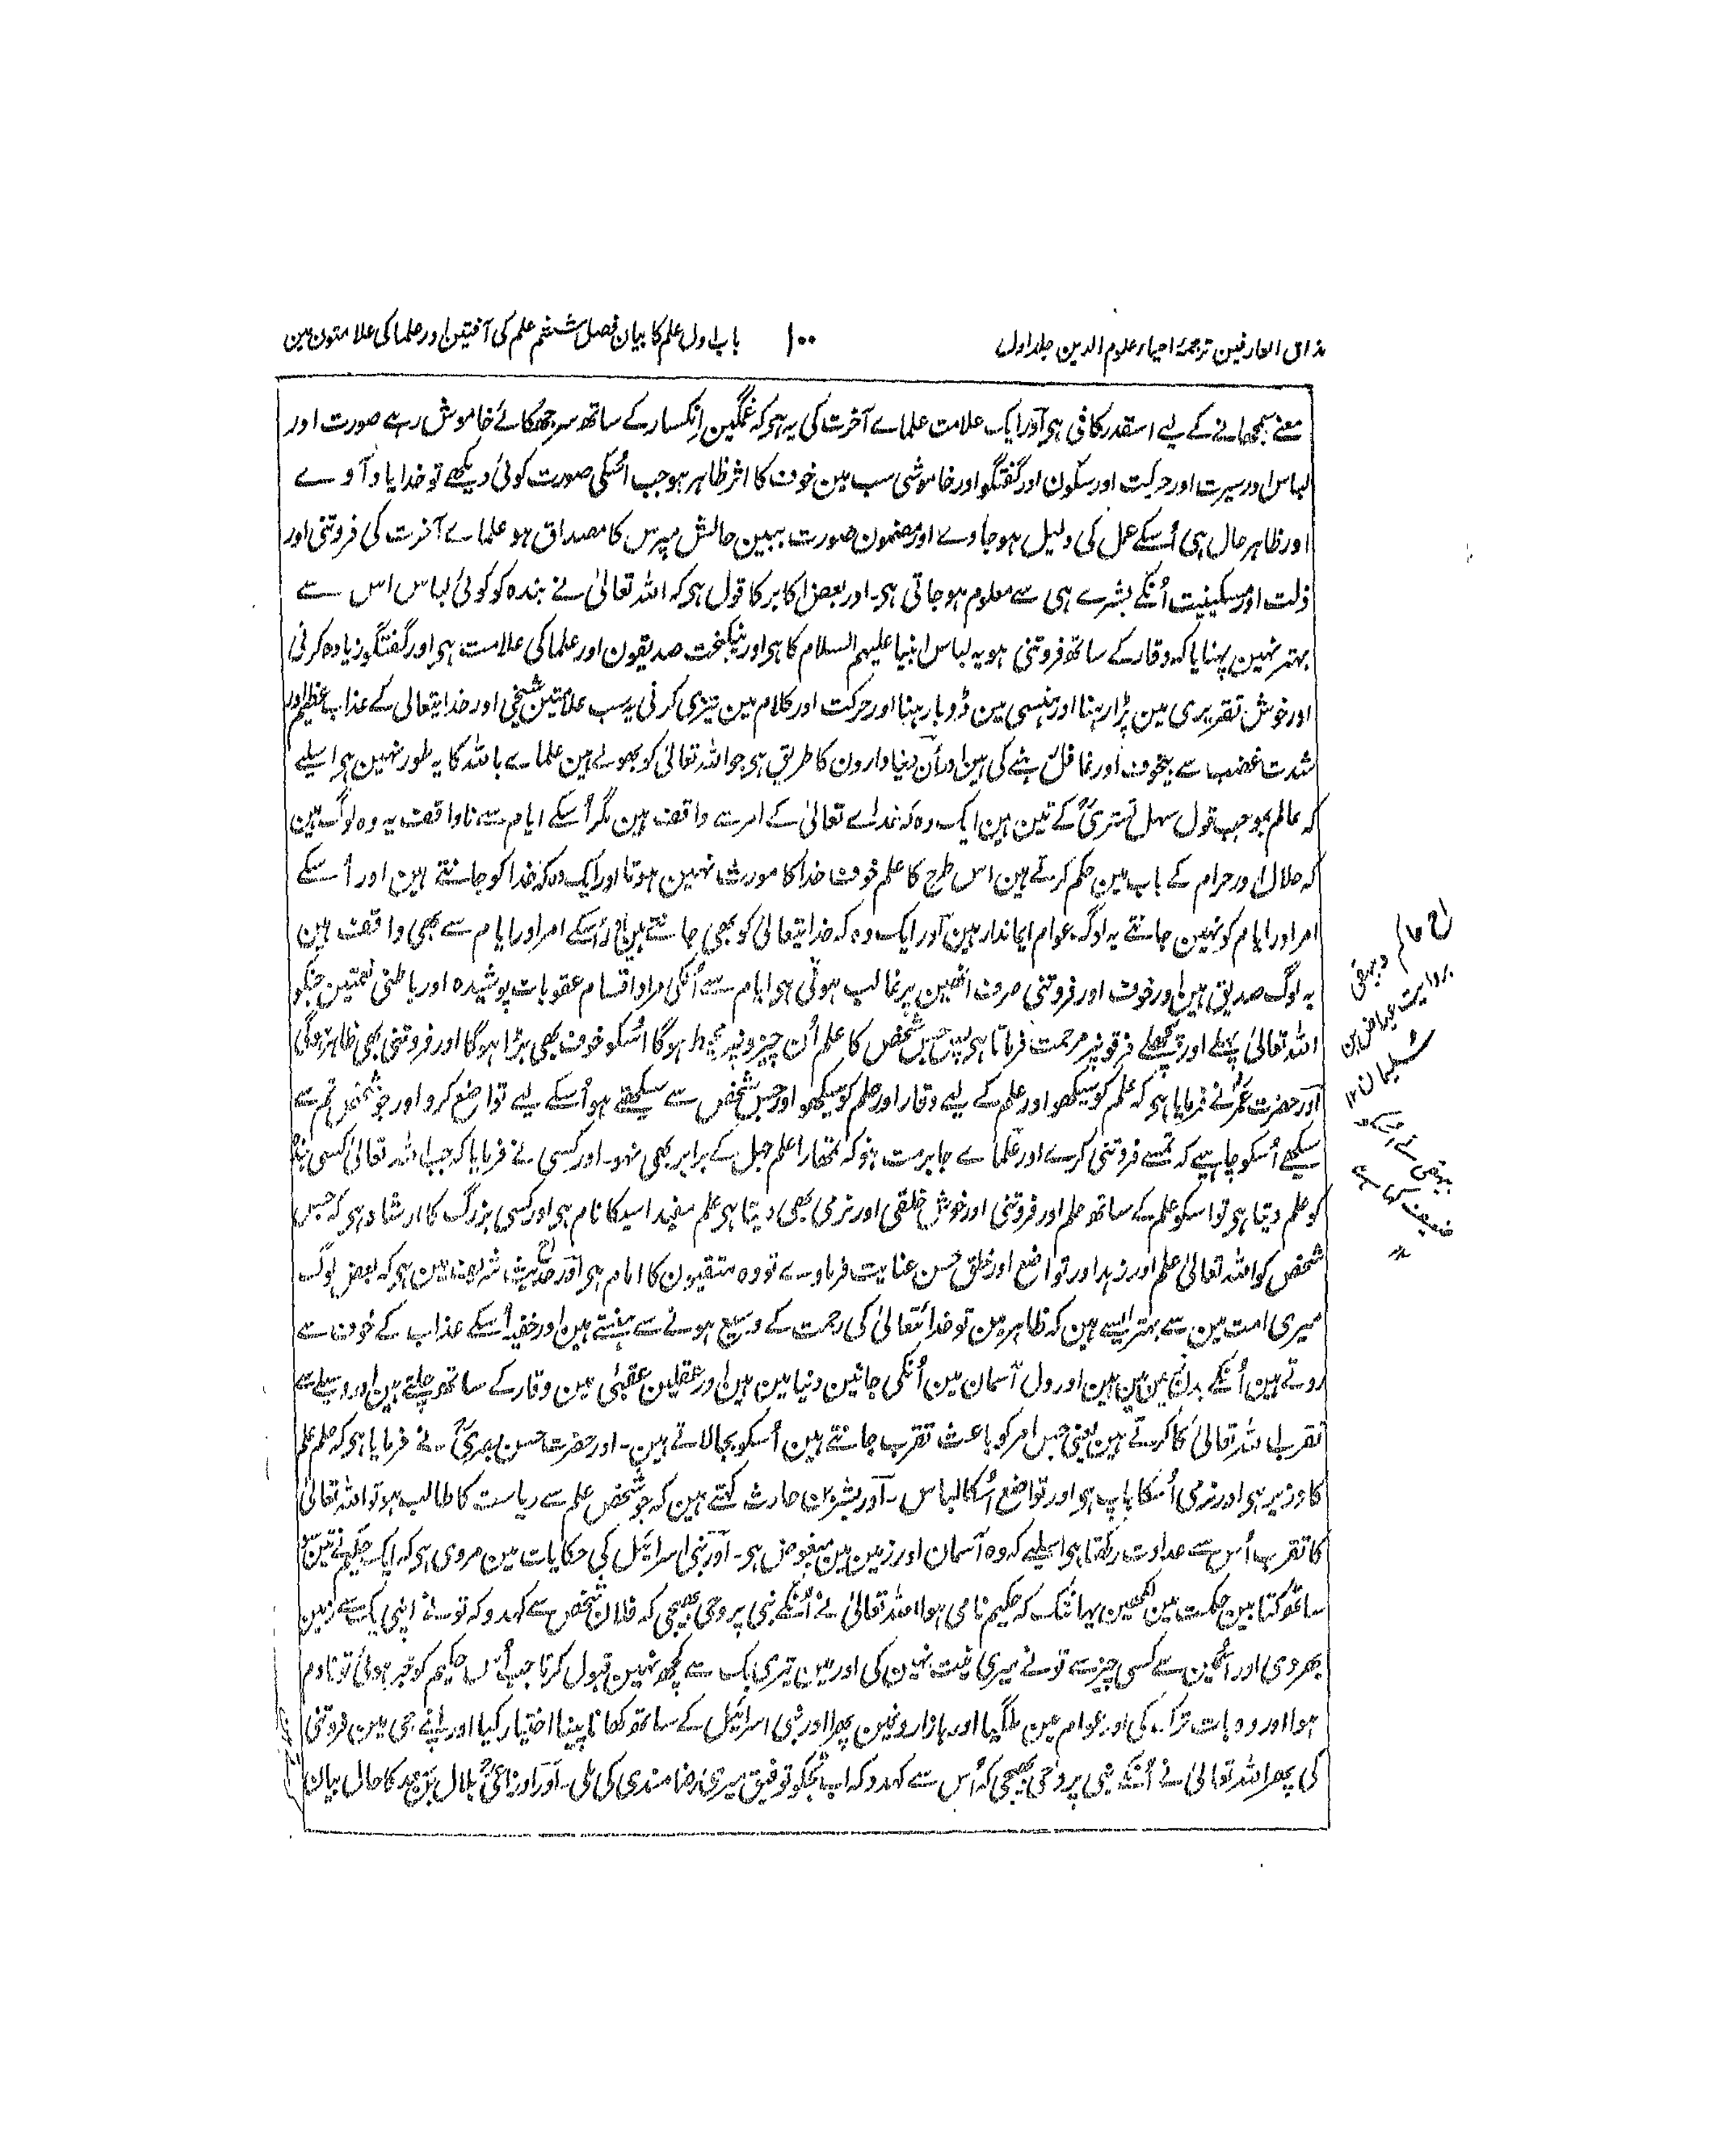 مذاق العارفین ترجمۂ احیاء علوم الدین جلد اول
۱۰۰
باب اول علم کا بیان فصل ششم علم کی آفتین اور علما کی علامتون مین
معنے سمجھانے کے لیے اسقدر کافی ہی اور ایک علامت علماے آخرت کی یہ ہی کہ غمگین انکسار کے ساتھ سر جھکائے خاموش رہے صورت اور
لباس اور سیرت اور حرکت اور سکون اور گفتگو اور خاموشی سب مین خوف کا اثر ظاہر ہو جب اُسکی صورت کوئی دیکھے تو خدا یاد آوے
اور ظاہر حال ہی اُسکے عمل کی دلیل ہو جاوے اور مضمون صورت ببین حالش مپرس کا مصداق ہو علماے آخرت کی فروتنی اور
ذلت اور مسکینیت اُنکے بشرے ہی سے معلوم ہو جاتی ہی۔ اور بعض اکابر کا قول ہی کہ اللہ تعالیٰ نے بندہ کو کوئی لباس اس سے
بہتر نہین پہنایا کہ وقار کے ساتھ فروتنی ہو یہ لباس انبیا علیہم السلام کا ہی اور نیکبخت صدیقون اور علما کی علامت ہی اور گفتگو زیادہ کرنی
اور خوش تقریری مین پڑا رہنا اور ہنسی مین ڈوبا رہنا اور حرکت اور کلام مین تیزی کرنی یہ سب علامتین شیخی اور خدایتعالی کے عذاب عظیم اور
شدت غضب سے بیخوف اور غافل بننے کی ہین اور اُن دنیا دارون کا طریق ہی جو اللہ تعالیٰ کو بھولے ہین علماے باللہ کا یہ طور نہین ہی اسلیے
کہ عالم بموجب قول سہل تستریؒ کے تین ہین ایک وہ کہ خداے تعالیٰ کے امر سے واقف ہین مگر اُسکے ایام سے ناواقف یہ وہ لوگ ہین
کہ حلال اور حرام کے باب مین حکم کرتے ہین اس طرح کا علم خوف خدا کا مورث نہین ہوتا اور ایک وہ کہ خدا کو جانتے ہین اور اُسکے
امر اور ایام کو نہین جانتے یہ لوگ عوام ایماندار ہین اور ایک وہ کہ خدایتعالیٰ کو بھی جانتے ہین اور اُسکے امر اور ایام سے بھی واقف ہین
یہ لوگ صدیق ہین اور خوف اور فروتنی صرف انھین پر غالب ہوتی ہی ایام سے اُنکی مراد اقسام عقوبات پوشیدہ اور باطنی نعمتین جنکو
اللہ تعالیٰ پہلے اور پچھلے فرقونپر مرحمت فرماتا ہی پس جس شخص کا علم اُن چیزونپر محیط ہوگا اُسکو خوف بھی بڑا ہوگا اور فروتنی بھی ظاہر ہوگی
اور حضرت عمرؓ نے فرمایا ہی کہ علم کو سیکھو اور علم کے لیے وقار اور حلم کو سیکھو اور جس شخص سے سیکھتے ہو اُسکے لیے تواضع کرو اور جو شخص تم سے
سیکھے اُسکو چاہیے کہ تمسے فروتنی کرے اور علماے جابر مت ہو کہ تمھارا علم جہل کے برابر بھی نہو۔ اور کسی نے فرمایا کہ جب اللہ تعالیٰ کسی بندہ
کو علم دیتا ہی تو اسکو علم کے ساتھ حلم اور فروتنی اور خوش خلقی اور نرمی بھی دیتا ہی علم مفید اسیکا نام ہی اور کسی بزرگ کا ارشاد ہی کہ جس
شخص کو اللہ تعالیٰ علم اور زہد اور تواضع اور خلق حسن عنایت فرماوے تو وہ متقیون کا امام ہی اور حدیث شریف مین ہی کہ بعض لوگ
میری امت مین سے بہتر ایسے ہین کہ ظاہر مین تو خداتعالیٰ کی رحمت کے وسیع ہونے سے ہنستے ہین اور خفیہ اُسکے عذاب کے خوف سے
روتے ہین اُنکے بدن زمین مین ہین اور دل آسمان مین اُنکی جانین دنیا مین ہین اور عقلین عقبیٰ مین وقار کے ساتھ چلتے ہین اور وسیلے سے
تقرب اللہ تعالیٰ کا کرتے ہین یعنی جس امر کو باعث تقرب جانتے ہین اُسکو بجا لاتے ہین۔ اور حضرت حسن بصریؒ نے فرمایا ہی کہ حلم علم
کا وزیر ہی اور نرمی اُسکا باپ ہی اور تواضع اُسکا لباس۔ اور بشر بن حارث کہتے ہین کہ جو شخص علم سے ریاست کا طالب ہو تو اللہ تعالیٰ
کا تقرب اُس سے عداوت رکھتا ہی اسلیے کہ وہ آسمان اور زمین مین مبغوض ہی۔ اور بنی اسرائیل کی حکایات مین مروی ہی کہ ایک حکیم نے تین سو
ساٹھ کتابین حکمت مین لکھین یہانتک کہ حکیم نامی ہوا اللہ تعالیٰ نے اُنکے نبی پر وحی بھیجی کہ فلان شخص سے کہدو کہ تو نے اپنی بک سے زمین
بھر دی اور اُنھین سے کسی چیز سے تو نے میری نیت نہین کی اور مین تیری بک سے کچھ نہین قبول کرتا جب اُس حکیم کو خبر ہوئی تو نادم
ہوا اور وہ بات ترک کی اور عوام مین ملگیا اور بازارونمین پھرا اور بنی اسرائیل کے ساتھ کھانا پینا اختیار کیا اور اپنے جی مین فروتنی
کی پھر اللہ تعالیٰ نے اُنکے نبی پر وحی بھیجی کہ اُس سے کہدو کہ اب تجکو توفیق میری رضامندی کی ملی۔ اور اوزاعیؒ بلال بن سعد کا حال بیان
حاکم و بیہقی
بروایت عیاض بن
سلیمان ۱۲
بیہقی نے اسکو
ضعیف کہا ہے
۱۲